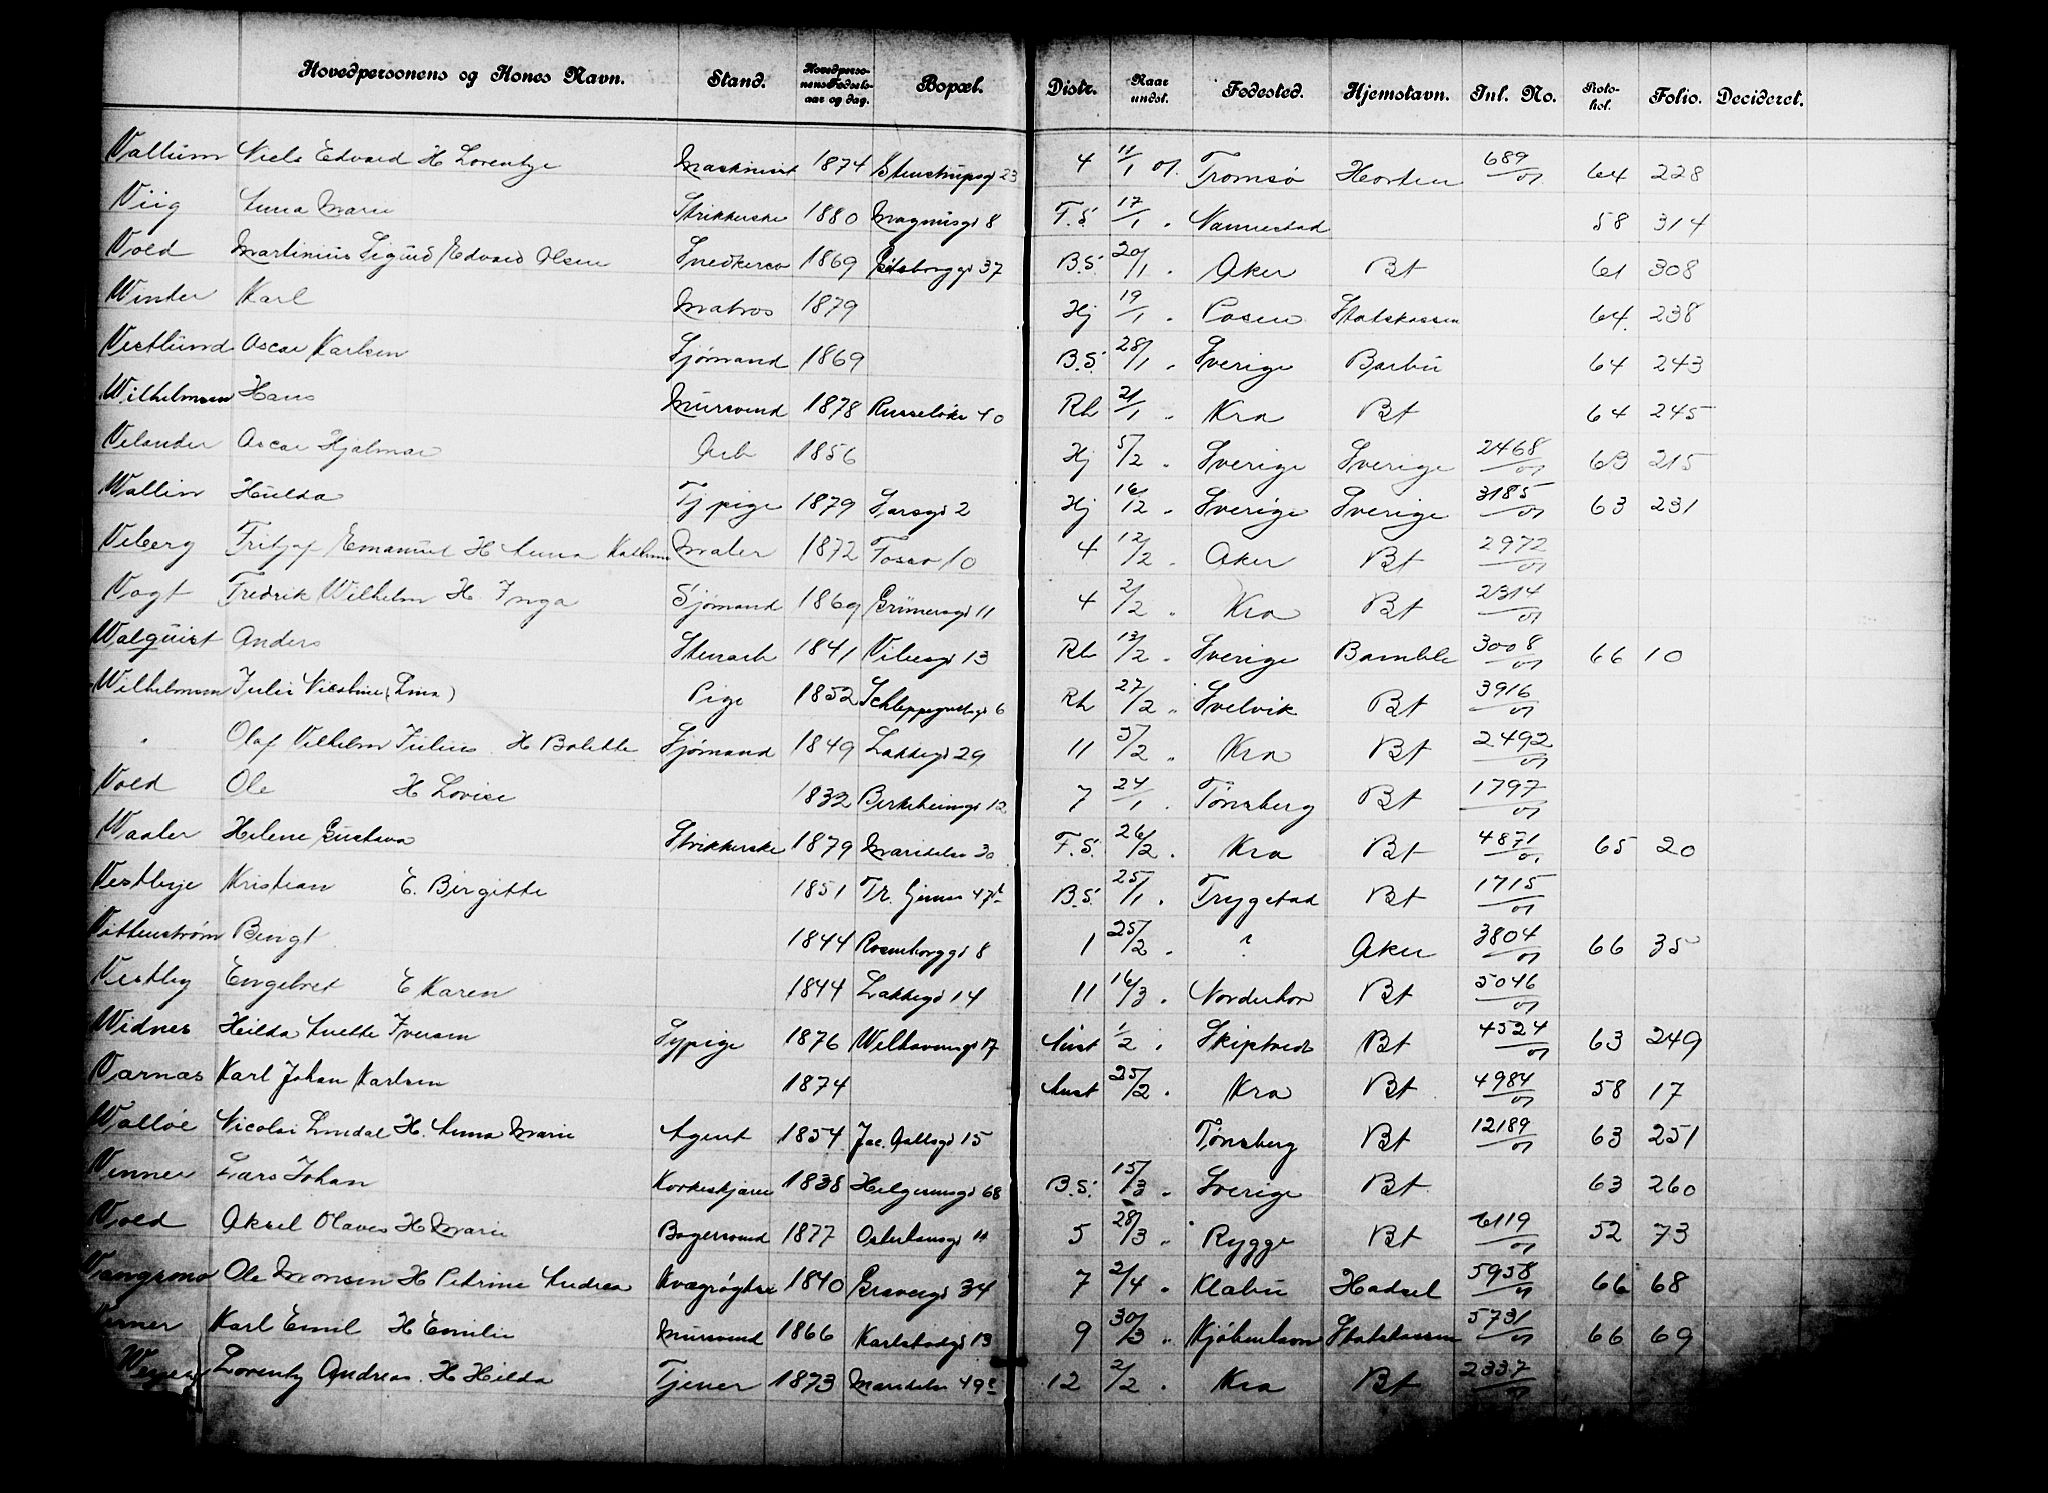 Hovedpersonens og Kones Navn. Stand. Hovedpersonens Fødselsaar og dag. Bopæl. Distr. Naar undst. Fødested. Hjemstavn. Inl. No. Protokol. Folio. Decideret.
Vallum Niels Edvard H Lorentze Maskinist 1874 Stenstrupsgd 23 4 11/1 01. Tromsø Horten 689/01 64 228
Viig Anna Marie Strikkerske 1880 Magnusgd 8 F.S. 17/1 " Nannestad 58 314
Vold Martinius Sigurd Edvard Olsen Snedkersv 1869 37 B.S. 20/1 " Aker Bt 61 308
Winter Karl Matros 1879 Hj 19/1 " Posen Statskassen 64. 238
Vestlund Oscar Karlsen Sjømand 1869 B.S. 28/1 " Sverige Barbu 64 243
Wilhelmsen Hans Mursvend 1878 Russeløkv 40 Rh 21/1 " Kra Bt 64 245
Velander Oscar Hjalmar Arb 1856 Hj 5/2 " Sverige Sverige 2468/01 63 215
Wallin Hulda Tj pige 1879 Larsgd 2 Hj 16/2 " Sverige Sverige 3185/01 63 231
Viberg Fritjof Emanuel H Anna Kathrin Maler 1872 Fossv 10 4 12/2 " Aker Bt 2972/01
Vogt Fredrik Wilhelm H. Inga Sjømand 1869 Grünersgd 11 4 2/2 " Kra Bt 2314/01
Walquist Anders Stenarb 1841 Vibesgd 13 Rh 13/2 " Sverige Bamble 3008/01 66 10
Wilhelmsen Julie Nicoline (Lina) Pige 1852 Schleppegrellsgd 6 Rh 27/2 " Svelvik Bt 3916/01
" Olaf Vilhelm Julius H Bolette Sjømand 1849 Lakkegd 29 11 5/2 " Kra Bt 2492/01
Vold Ole H Lovise 1832 Birkebeinsgd 12 7 24/1 " Tønsberg Bt 1797/01
Waaler Helene Gustava Strikkerske 1879 Maridalsv 30 F.S. 26/2 " Kra Bt 4871/01 65 20
Vestbye Kristian E. Birgitte 1851 Tr. 47b B.S. 25/1 " Trygstad Bt 1715/01
Vittenstrøm Bengt 1844 Rosenborggd 8 1 25/2 " ? Aker 3804/01 66 35
Vestby Engebret E Karen 1844 Lakkegd 14 11 16/3 " Norderhov Bt 5046/01
Widnes Hilda Anette Iversen Sypige 1876 Welhavensgd 17 Anst 1/2 " Skiptvedt Bt 4524/01 63 249
Varnas Karl Johan Karlsen 1874 Anst 25/2 " Kra Bt 4984/01 58 17
Walløe Nicolai Lindal H. Anna Marie Agent 1854 Jac. Aallsgd 15 Tønsberg Bt 12189/01 63 251
Venner Lars Johan Korkeskjærer 1838 Helgesensgd 68 B.S. 15/3 " Sverige Bt 63 260
Vold Aksel Olaves H Marie Bagersvend 1877 Osterhausgd 11 5 28/3 " Rygge Bt 6119/01 52 73
Vangsmo Ole Monsen H Petrine Andrea Kvægrøgter 1840 Gravergd 34 7 2/4 " Klæbu Hadsel 5958/01 66 68
Karl Emil H Emilie Mursvend 1866 Karlstadgd 13 9 30/3 " Kjøbenhavn Statskassen 5731/01 66 69
Lorentz Andreas H Hilda Tjener 1873 Maridalsv 49c 12 2/2 " Kra Bt 2337/01